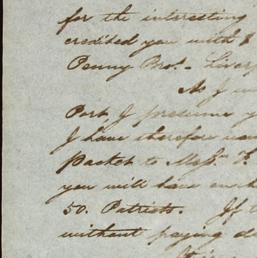 for the interesting
credited you with $
Penny Bro. - Liverp
As I
Port, I presume y
I have therefore
packet to Mess. F.
you will have
50. Patriots. If t
without paying d